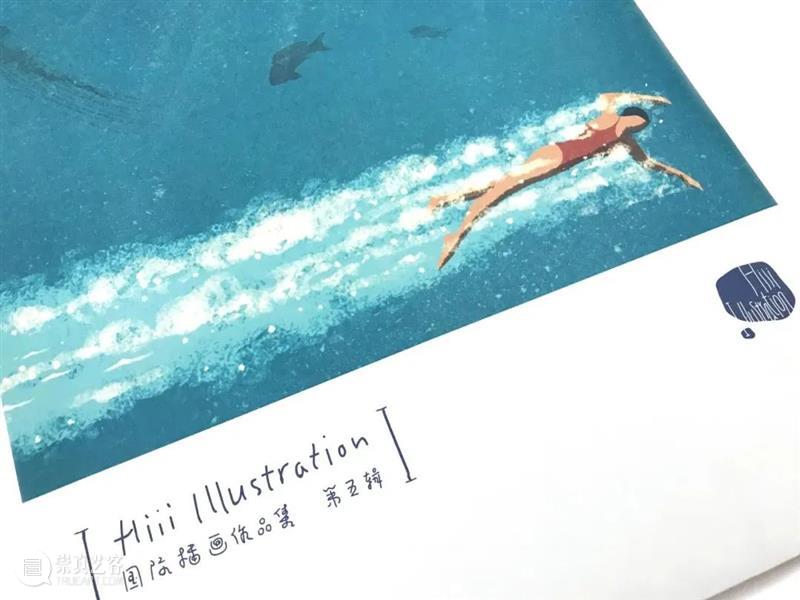 Hiii
Illustration
Hiii Illustration
国际插画作品集 第五辑
崇真艺客
TRUEART.COM